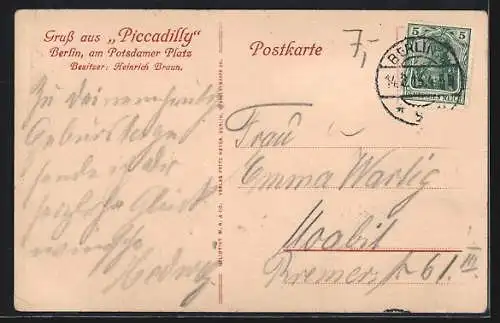 Gruß aus „Piccadilly"
Berlin, am Potsdamer Platz
Besitzer: Heinrich Braun.
Postkarte
7,-
5 5
BERLIN
Zu Deinem heutigen
Geburtstage
sende ich dir
herzliche Glück
wünsche
Hedwig
Frau
Emma Wartig
Moabit
Bremerstr 61. III.